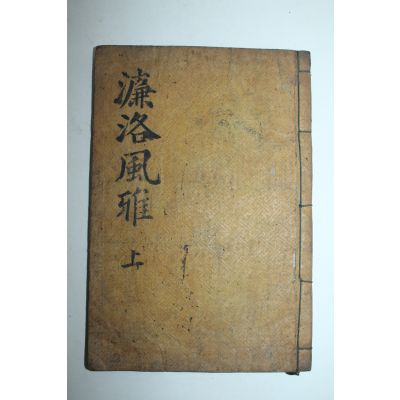 濂洛風雅
上